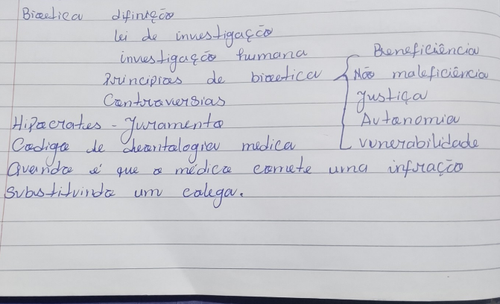 Bioetica difinição
lei de investigação
investigação humana
Principias de bioetica
Contraversias
Beneficiência
Não maleficiência
Justiça
Autonomia
vunerabilidade
Hipocrates - Juramento
Codigo de deontalogia medica
Quando é que o médico comete uma infração
Substituindo um colega.